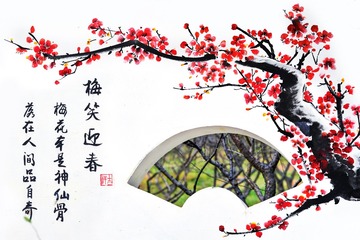 梅笑迎春
梅花本是神仙骨
落在人间品自奇